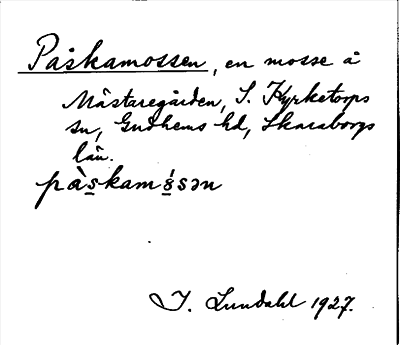 Påskamossen, en mosse å
Mästaregården, S. Kyrketorps
sn, Gudhems hd, Skaraborgs
län.
I. Lundahl 1927.